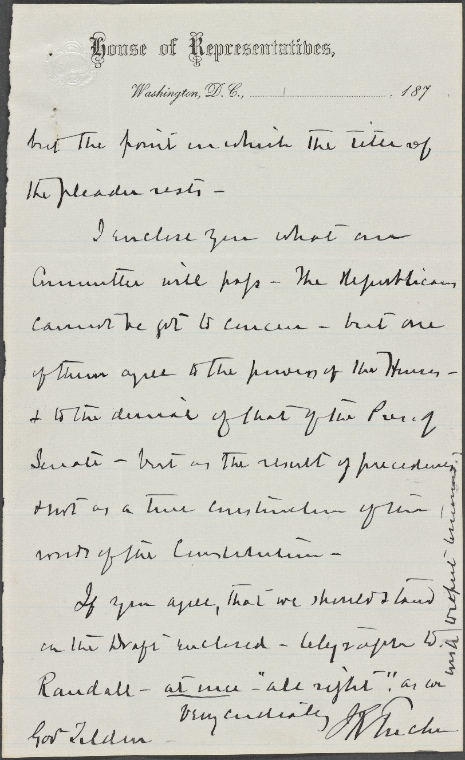 House of Representatives,
Washington, D.C., 187
but the point on which the title of
the pleader rests –
I enclose you what our
Committee will pass – The Republicans
cannot be got to concur – but one
of them agree to the powers of the Houses –
& to the denial of that of the Pres. of
Senate – but as the result of precedents
& not as a true construction of the
words of the Constitution –
If you agree, that we should stand
on the Draft enclosed – telegraph to
Randall – at once – "all right". as we
Very cordially
Gov Tilden
J R Tucker